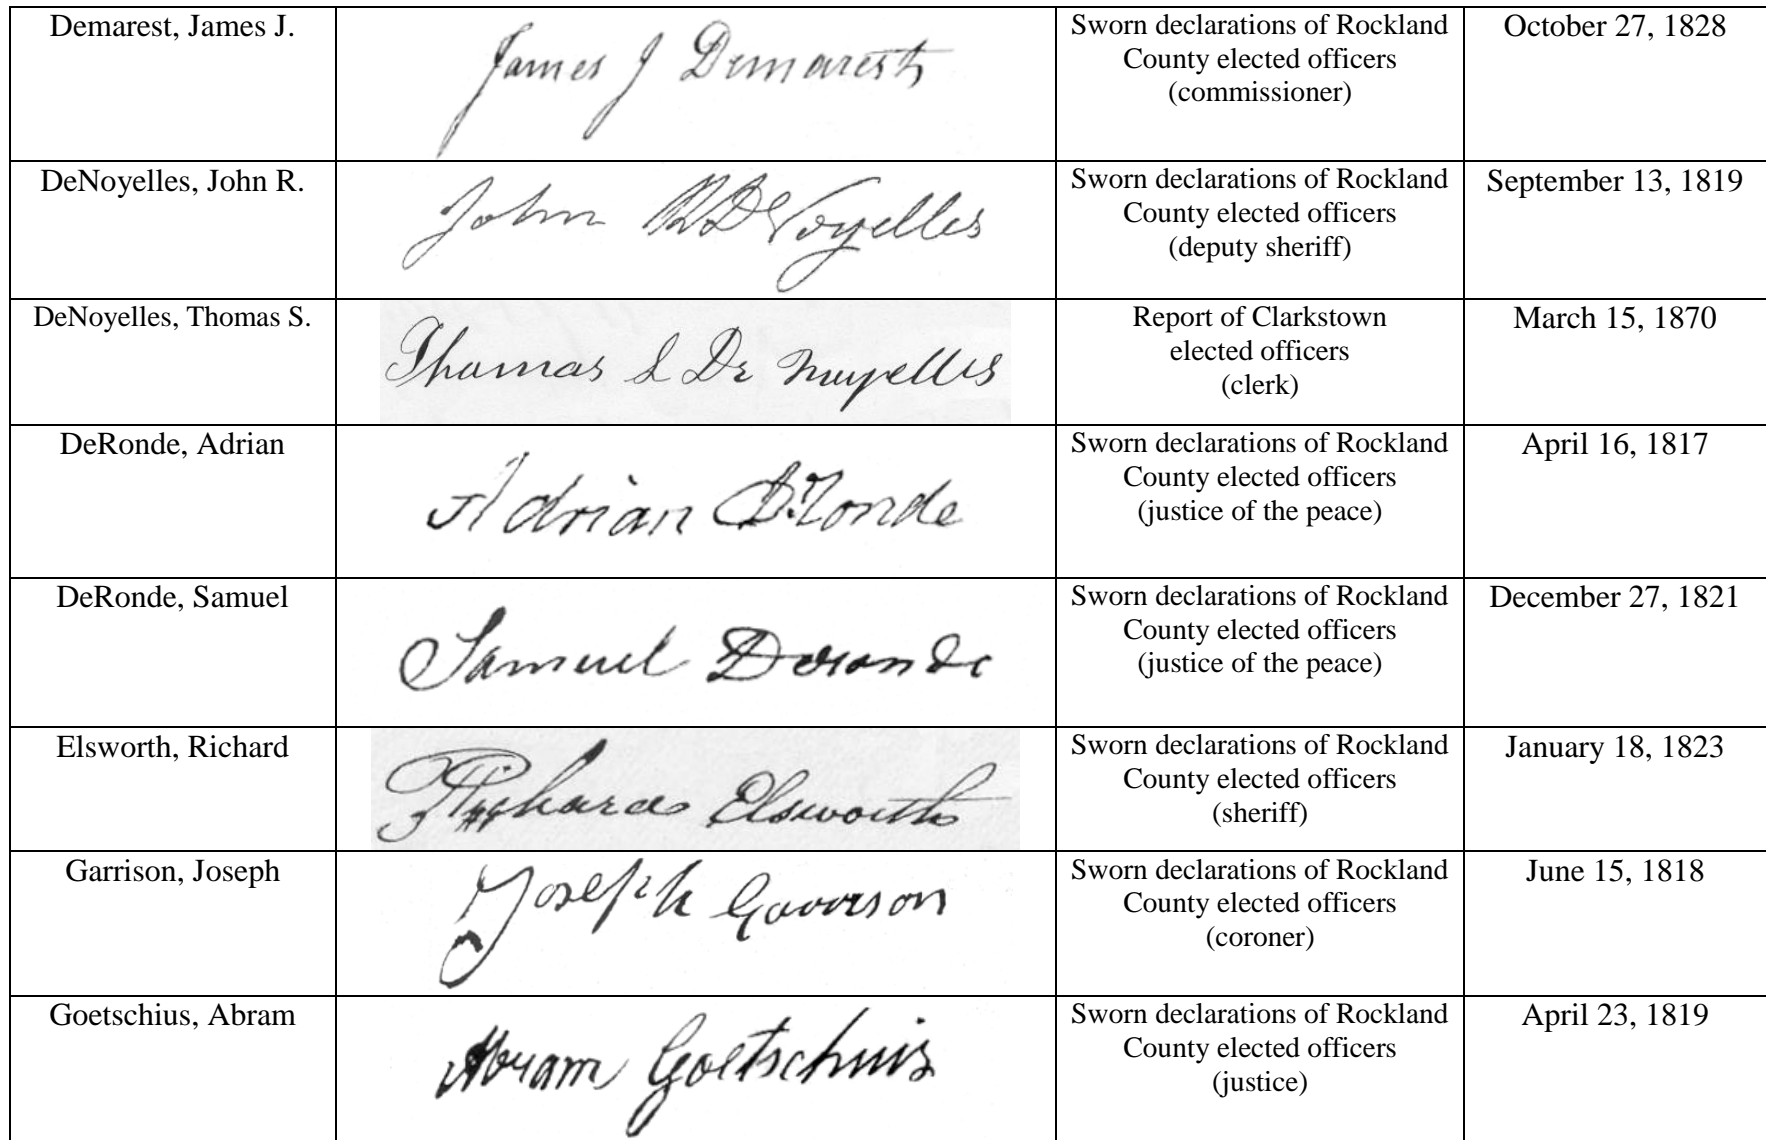 Demarest, James J.
James J Demarest
Sworn declarations of Rockland
County elected officers
(commissioner)
October 27, 1828
DeNoyelles, John R.
John R DeNoyelles
Sworn declarations of Rockland
County elected officers
(deputy sheriff)
September 13, 1819
DeNoyelles, Thomas S.
Thomas S De Noyelles
Report of Clarkstown
elected officers
(clerk)
March 15, 1870
DeRonde, Adrian
Adrian DeRonde
Sworn declarations of Rockland
County elected officers
(justice of the peace)
April 16, 1817
DeRonde, Samuel
Samuel Deronde
Sworn declarations of Rockland
County elected officers
(justice of the peace)
December 27, 1821
Elsworth, Richard
Richard Elsworth
Sworn declarations of Rockland
County elected officers
(sheriff)
January 18, 1823
Garrison, Joseph
Joseph Garrison
Sworn declarations of Rockland
County elected officers
(coroner)
June 15, 1818
Goetschius, Abram
Abram Goetschius
Sworn declarations of Rockland
County elected officers
(justice)
April 23, 1819